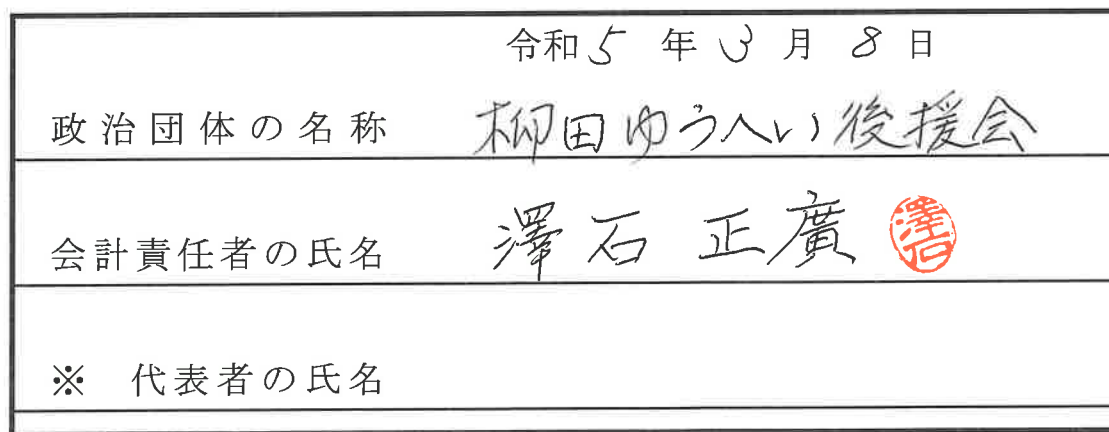 令和5年3月8日
政治団体の名称 柳田ゆうへい後援会
会計責任者の氏名 澤石 正廣 澤石
※ 代表者の氏名